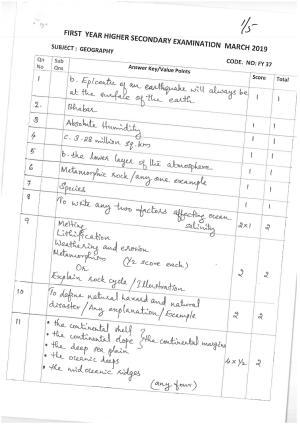 1/5
FIRST YEAR HIGHER SECONDARY EXAMINATION MARCH 2019
SUBJECT : GEOGRAPHY
CODE. NO: FY 37
Qn No Sub Qns Answer Key/Value Points Score Total
1 b. Epicentre of an earthquake will always be at the surface of the earth 1 1
2. Bhabar 1 1
3 Absolute Humidity 1 1
4 c. 3.28 million sq.km 1 1
5 b. the lower layer of the atmosphere 1 1
6 Metamorphic rock/any one example 1 1
7 Species 1 1
8 To write any two factors affecting ocean salinity 2x1 2
9 Melting
Lithification
Weathering and erosion
Metamorphism (1/2 score each) 2 2
Or
Explain rock cycle/Illustration
10 To define natural hazard and natural
disaster/Any explanation/Example 2 2
11 • the continental shelf
• the continental slope } the continental margins
• the deep sea plain
• the oceanic deeps 4 x 1/2 2
• the mid oceanic ridges
(any four)